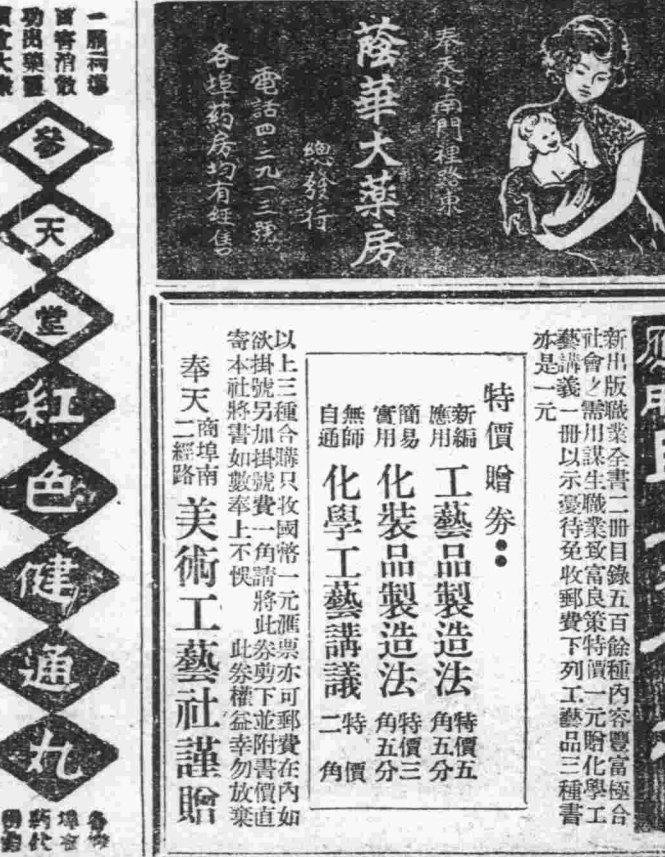 奉天小南門裡路東
蔭華大薬房
總發行
電話四二九一三號
各埠葯房均有經售
新出版職業全書二冊目錄五百餘種內容豐富極合
社會之需用謀生職業致富良策特價一元贈化學工
藝講義一冊以示憂待免收郵費下列工藝品三種書
亦是一元
特價贈券
新編應用 工藝品製造法 特價五角五分
簡易實用 化裝品製造法 特價三角五分
無師自通 化學工藝講議 特價二角
以上三種合購只收國幣一元滙票亦可郵費在內如
欲掛號另加掛號費一角請將此券剪下並附書價直
寄本社將書如數奉上不悞 此券權益幸勿放棄
奉天商埠南二經路 美術工藝社謹贈
參天堂紅色健通丸